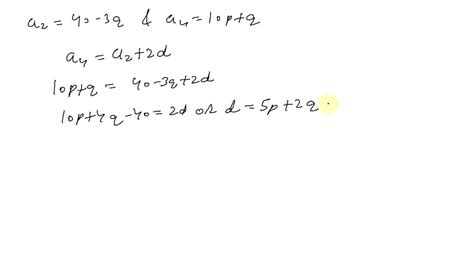 a₂ = 40-3q & a₄ = 10p+q
a₄ = a₂+2d
10p+q = 40-3q+2d
10p+4q-40=2d or d=5p+2q